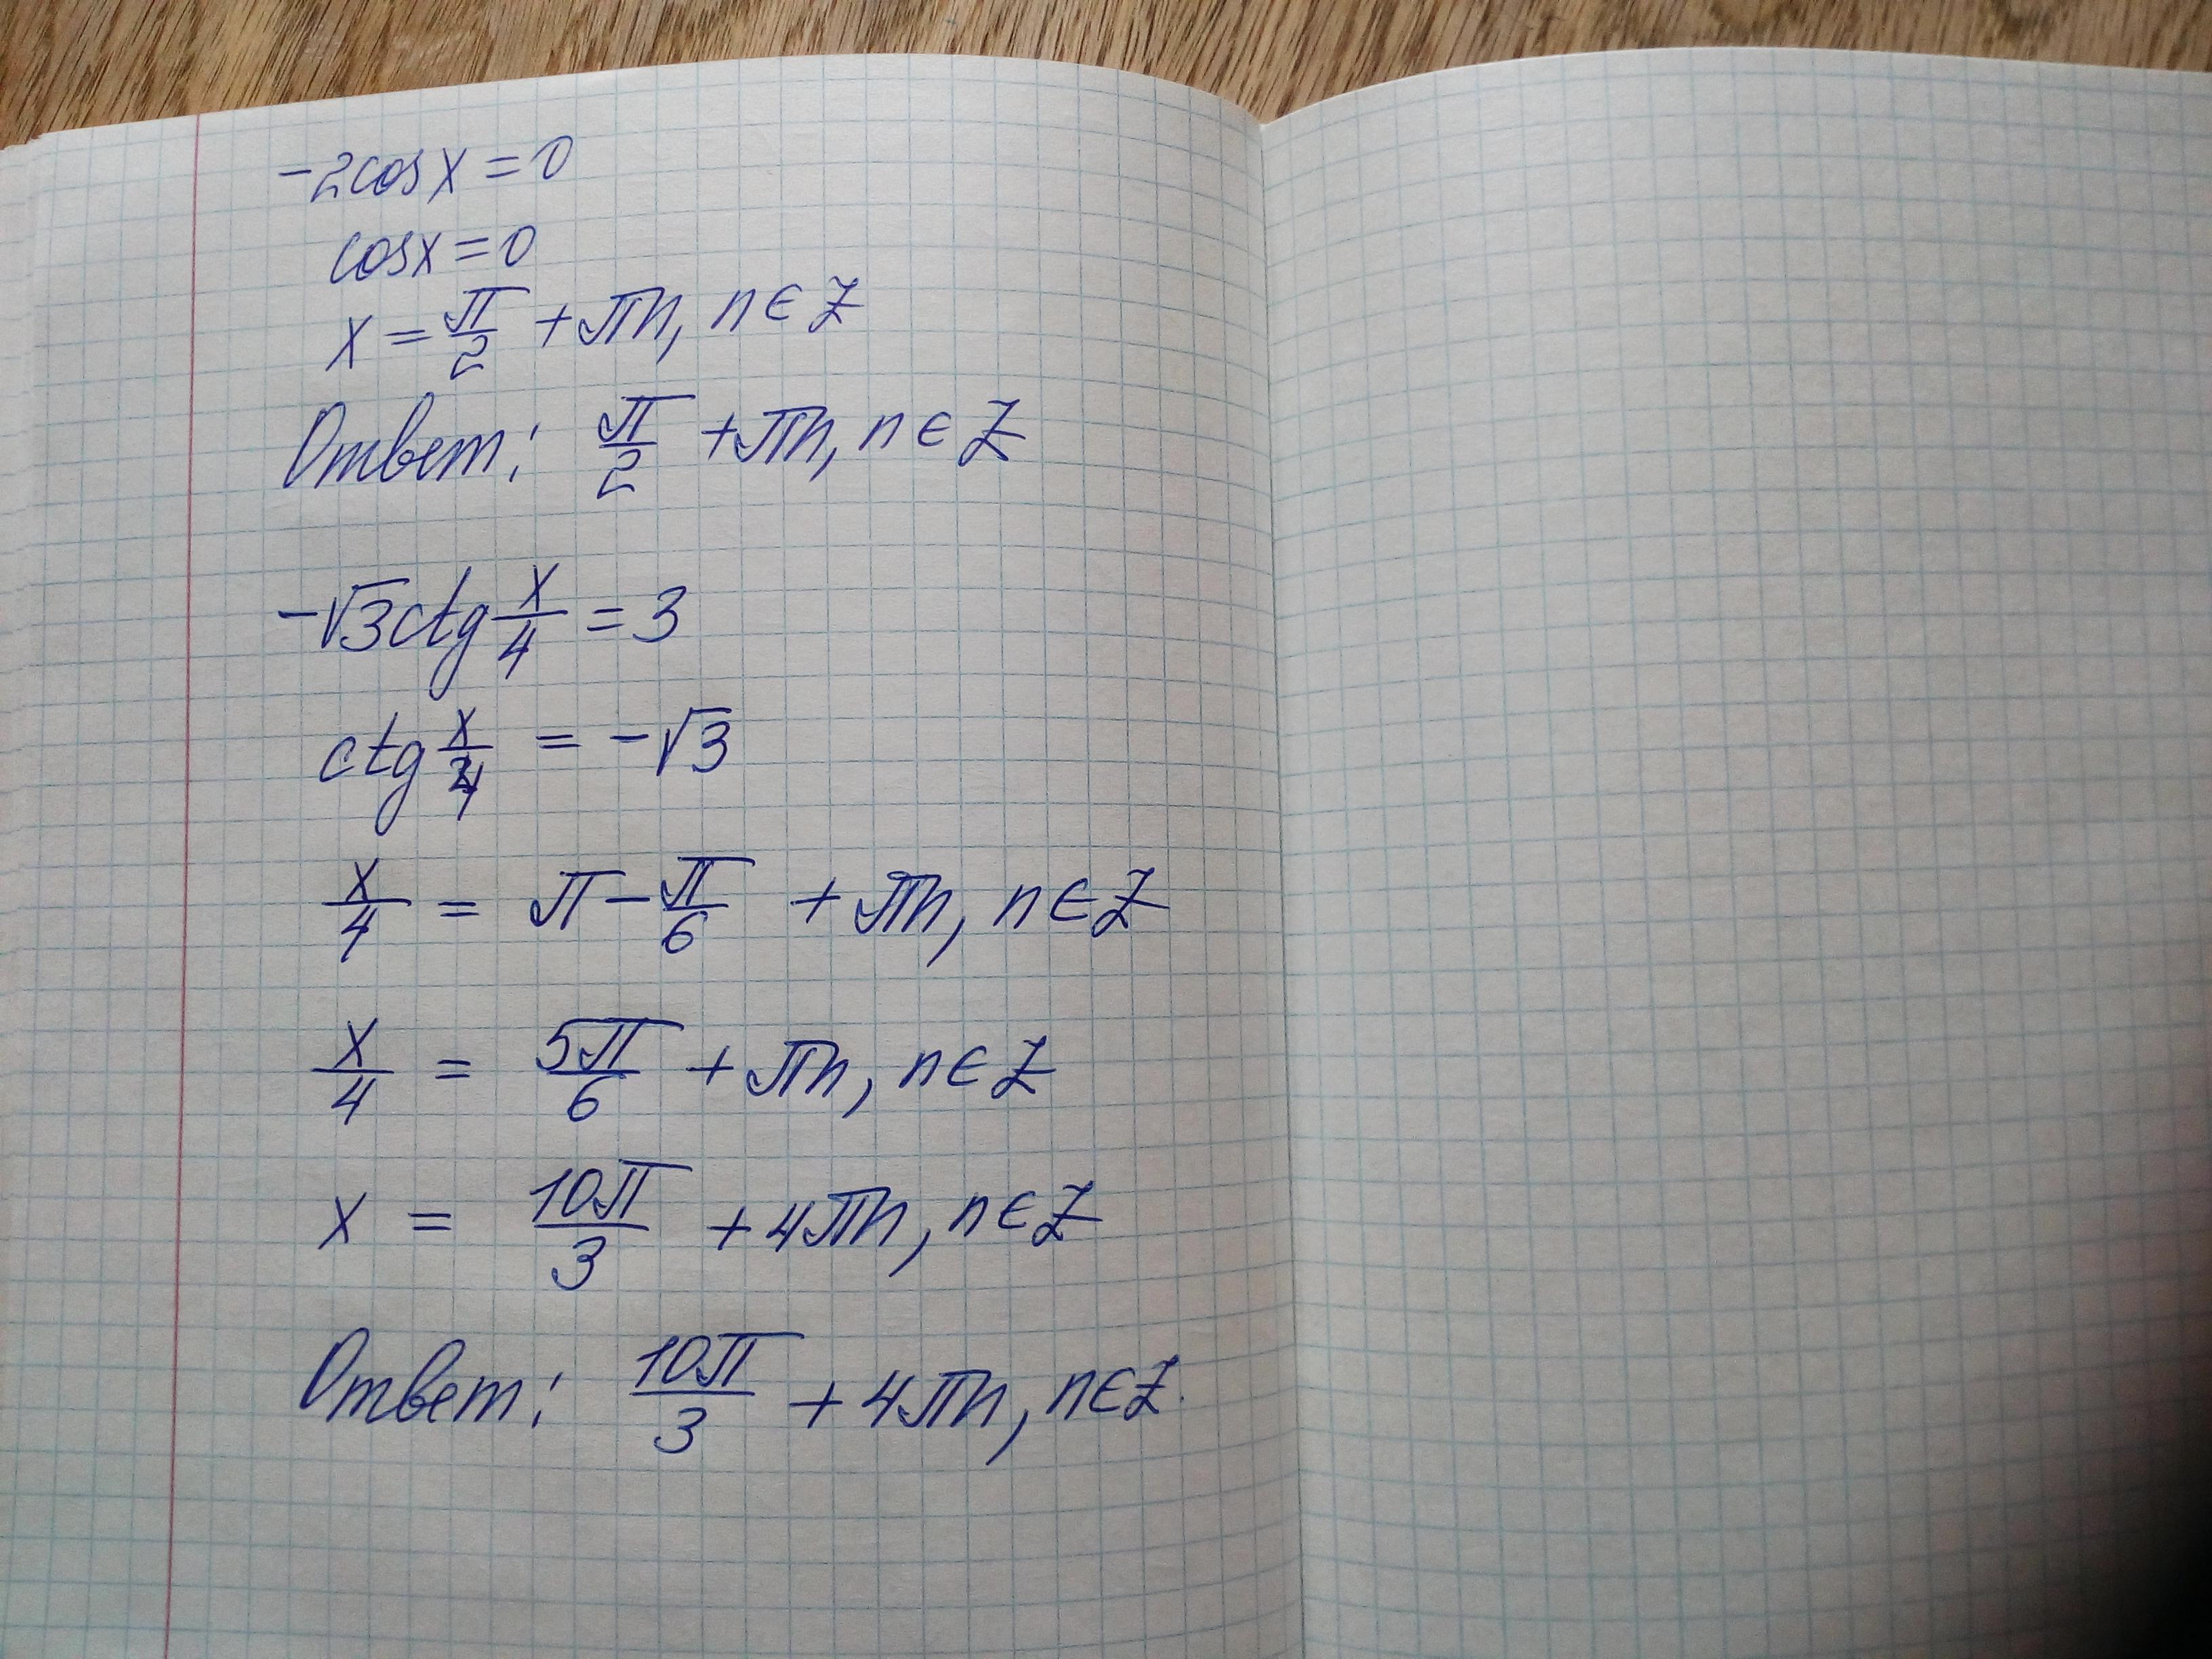 -2cosx = 0
cosx = 0
x = π/2 + πn, n ∈ Z
Ответ: π/2 + πn, n ∈ Z
-√3ctg x/4 = 3
ctg x/4 = -√3
x/4 = π - π/6 + πn, n ∈ Z
x/4 = 5π/6 + πn, n ∈ Z
x = 10π/3 + 4πn, n ∈ Z
Ответ: 10π/3 + 4πn, n ∈ Z.